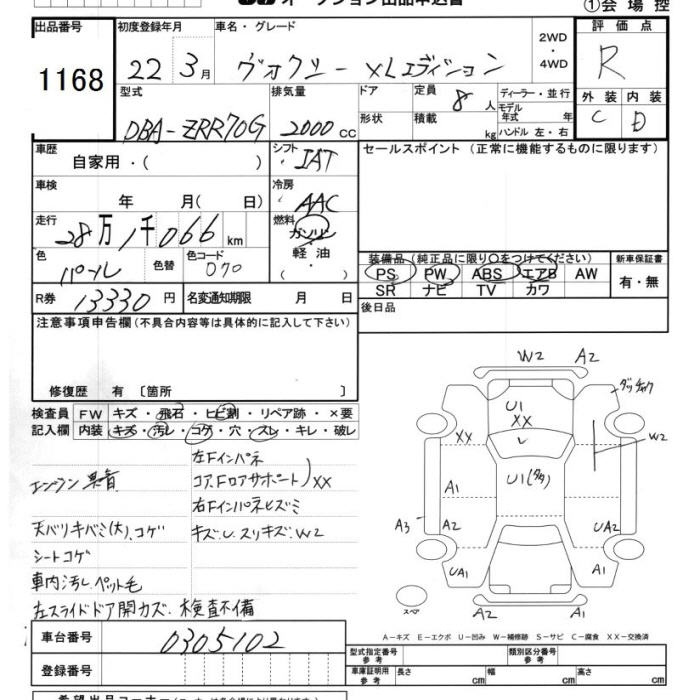 オークション出品申込書
①会場控
出品番号 初度登録年月 車名・グレード 2WD・4WD 評価点
1168 22 3月 ヴォクシー XLエディション R
型式 排気量 ドア 定員 8人 ディーラー・並行 外装 内装
DBA-ZRR70G 2000cc 形状 積載 kg モデル年式 年 ハンドル 左・右 C D
車歴 シフト セールスポイント(正常に機能するものに限ります)
自家用・( ) IAT
車検 冷房
年 月(日) AAC
走行 燃料
28万1千066km ガソリン
色 色替 色コード 軽油・( )
パール 070
装備品(純正品に限り○をつけてください) 新車保証書
PS PW ABS エアB AW 有・無
SR ナビ TV カワ
R券 13330円 名変通知期限 月 日
後日品
注意事項申告欄(不具合内容等は具体的に記入して下さい)
修復歴 有〔箇所 〕
検査員記入欄 FW キズ・飛石・ヒビ割・リペア跡・×要
内装 キズ・汚レ・コゲ・穴・スレ・キレ・破レ
左Fインパネ
コア、Fロアサポート)XX
エンジン 異音
右Fインパネヒズミ
天バリキバミ(大)、コゲ
キズ、U、スリキズ、W2
シートコゲ
車内汚し、ペット毛
左スライドドア開カズ、検査不備
W2 A2
U1 XX
XX
W2
A1
U1
A3 A2 UA2
UA1 A1
スペア
A2 A1
A-キズ E-エクボ U-凹み W-補修跡 S-サビ C-腐食 XX-交換済
車台番号 0305102
登録番号
型式指定番号 参考 類別区分番号 参考
車庫証明用 参考 長さ cm 幅 cm 高さ cm